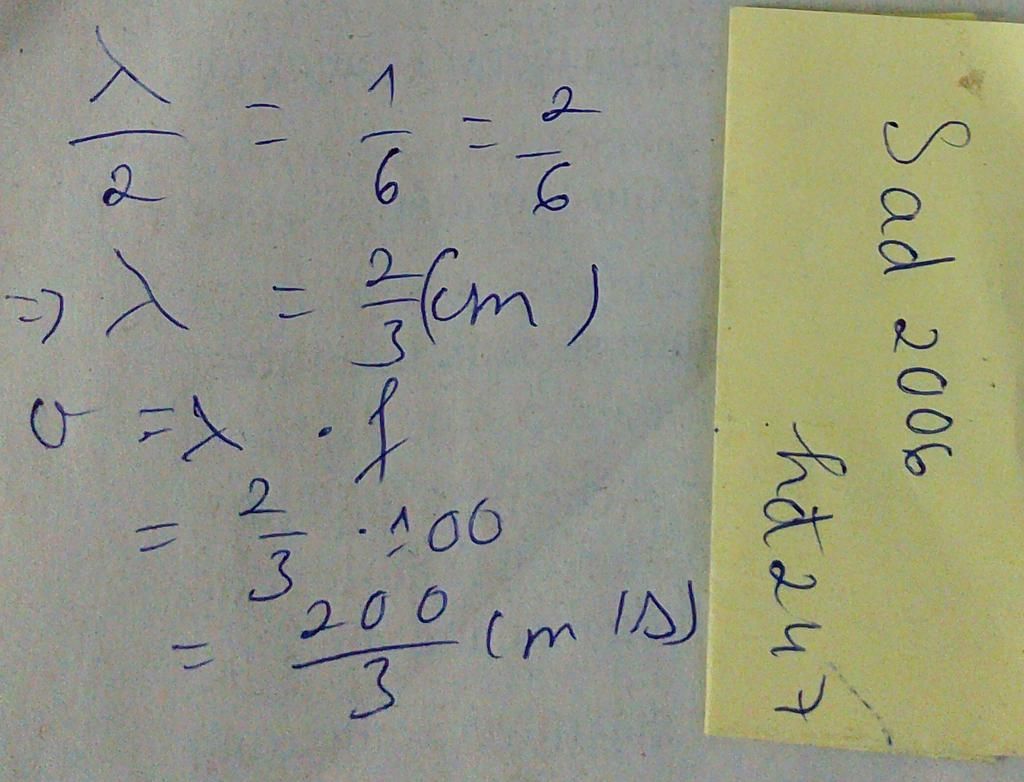 λ/2 = 1/6 = 2/6
=> λ = 2/3 (cm)
v = λ . f
= 2/3 . 100
= 200/3 (m/s)
Sad 2006
hđ247